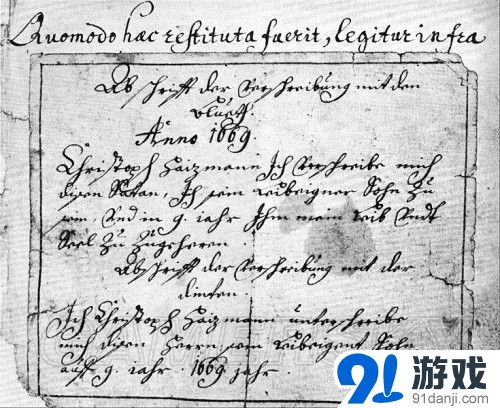 Quomodo haec restituta fuerit, legitur infra
Abschrifft der Verschreibung mit den
bluett.
Anno 1669.
Christoph Haizmann Ich Verschreibe mich
disen Satan, Ich sein leibeigner Sohn Zu
sein, Vnd in 9. iahr Ihm mein Leib Vndt
Seel Zu Zugeheren.
Abschrifft der Verschreibung mit der
dinten.
Ich Christoph Haizmann unterschreibe
mich disen Herrn, sein leibeigent Sohn
auff 9. iahr. 1669 jahr.
91游戏
91danji.com